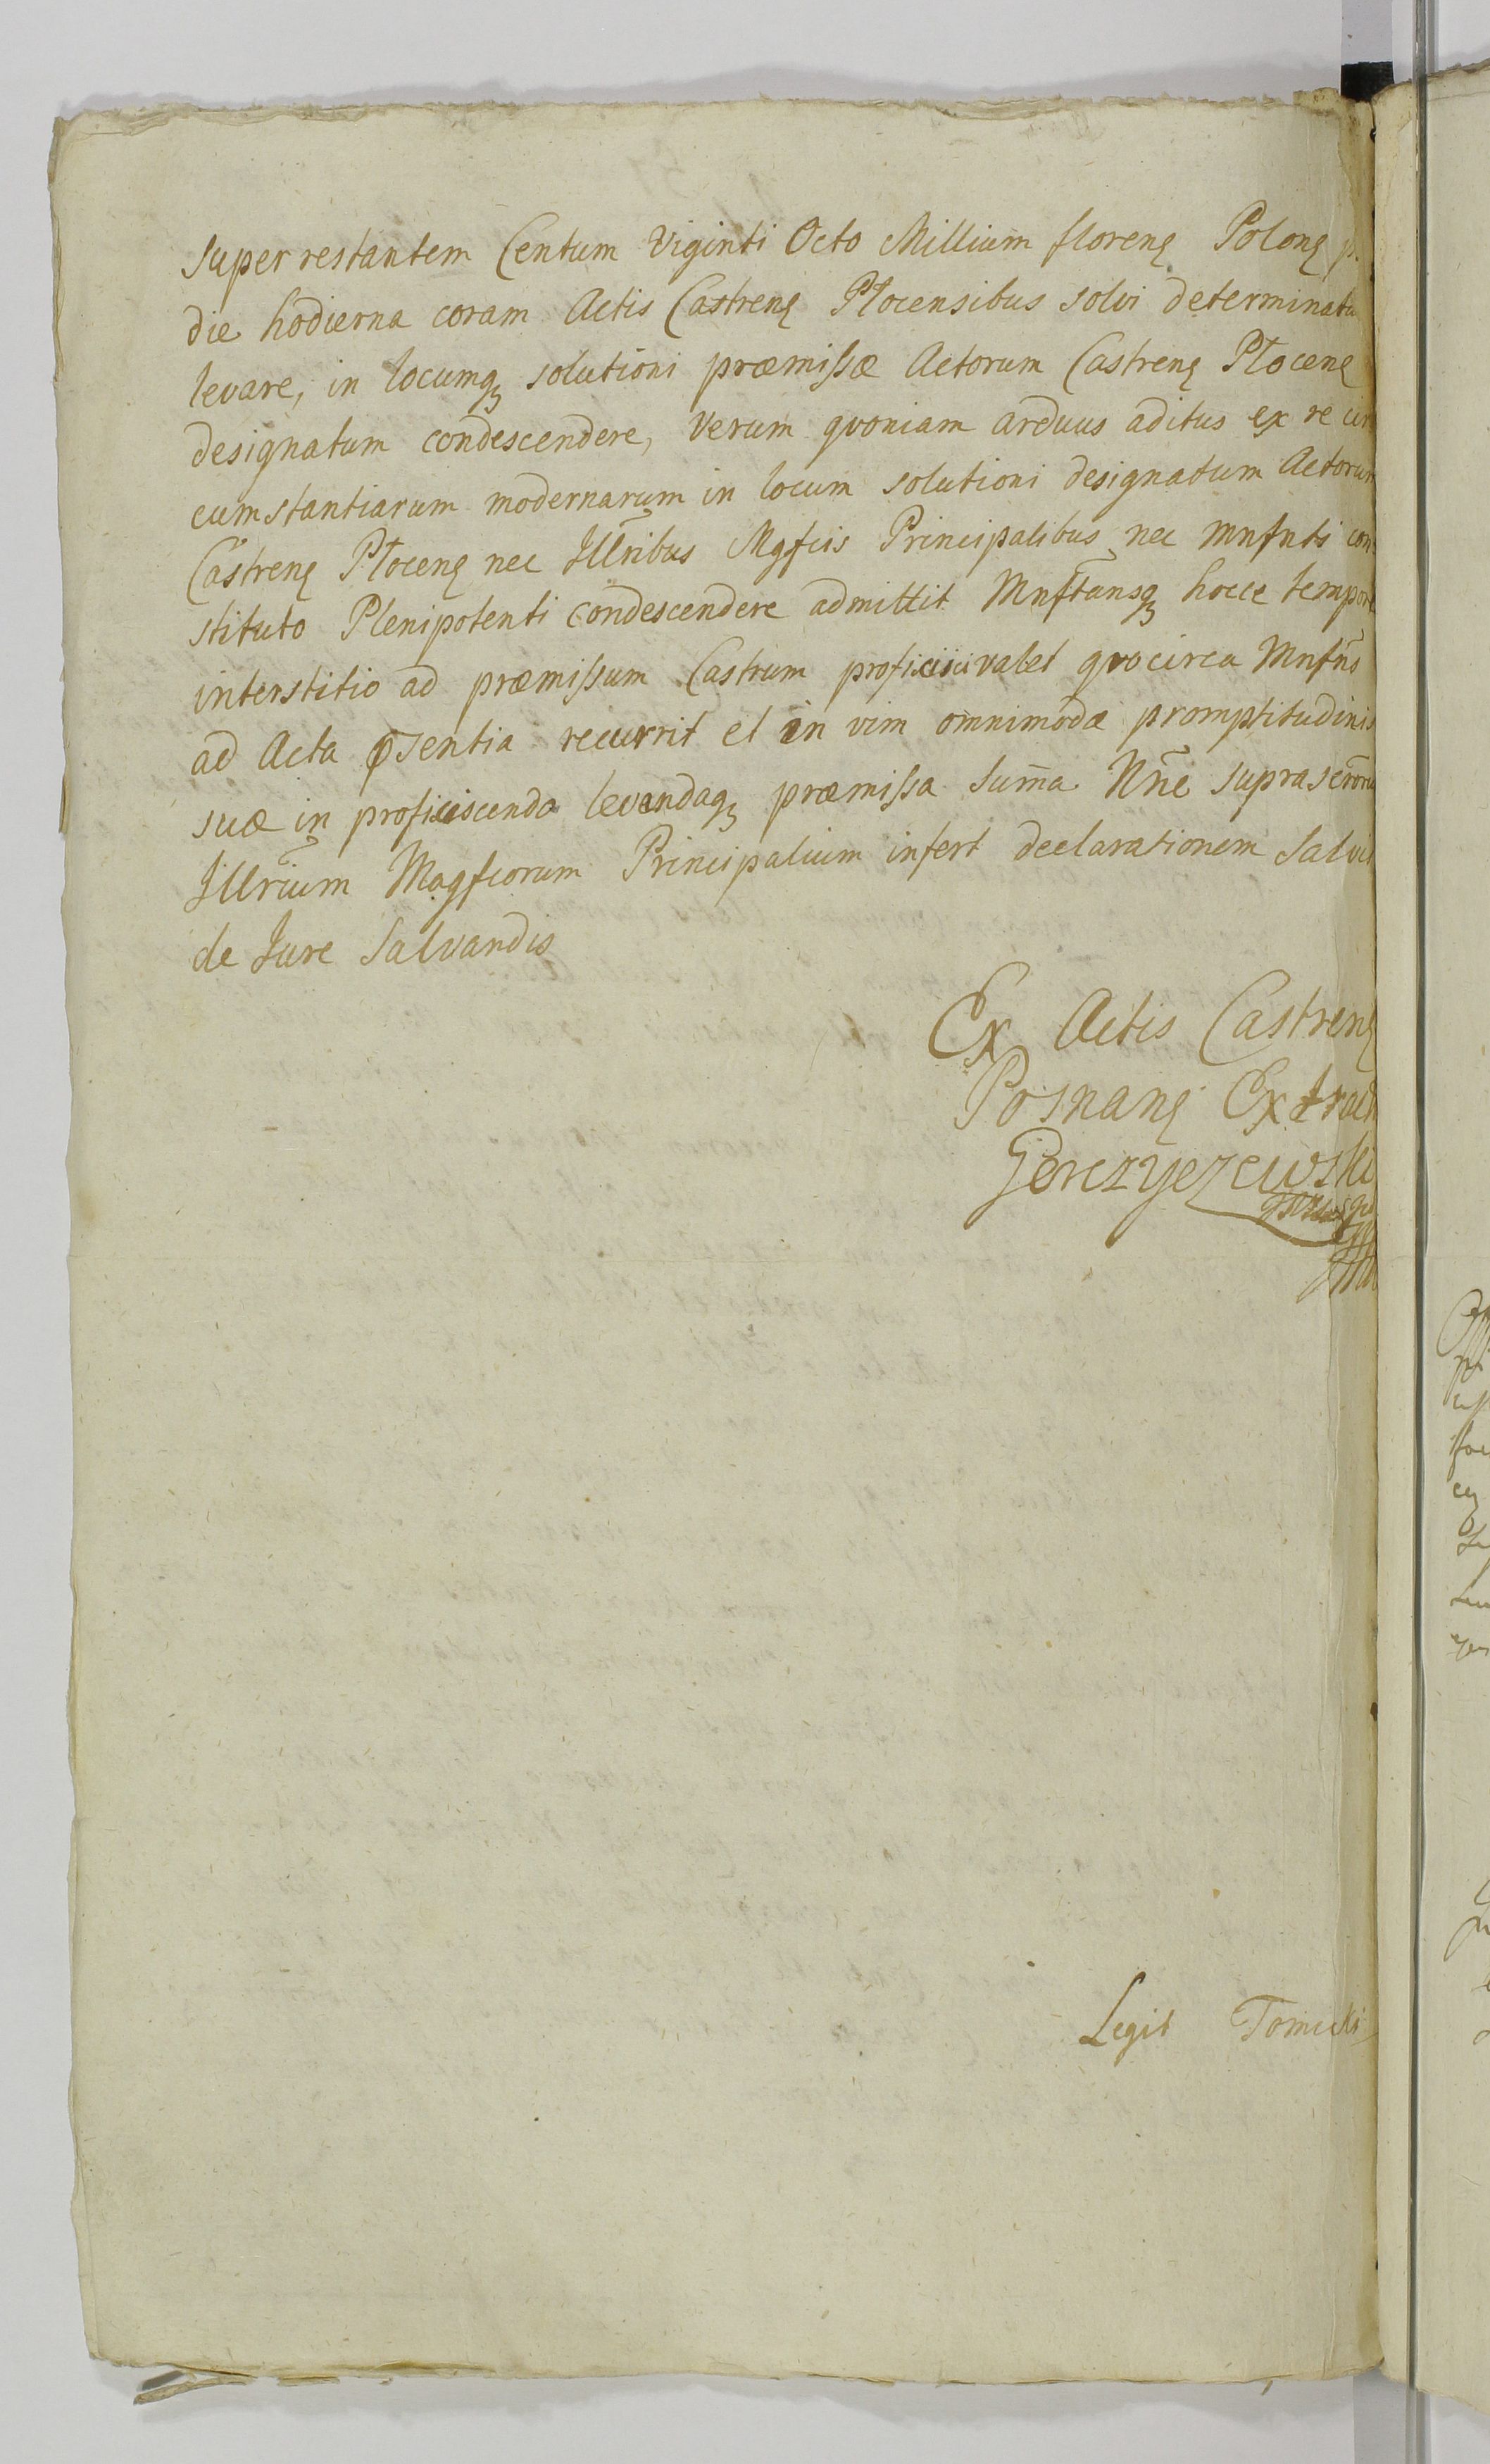 super restantem Centum Viginti Octo Millium florenę Polonę
die hodierna coram Actis Castrenę Płocensibus solvi determinatu
levare, in locumqꝫ solutioni præmissæ Actorum Castrenę Płocenę
designatum condescendere, Verum qvoniam arduus aditus ex re cir
cumstantiarum modernarum in locum solutioni designatum Actorum
Castrenę Płocenę nec Jllribus Mgfcis Principalibus nec Mnfnti con
stituto Plenipotenti condescendere admittit Mnftansqꝫ hocce tempore
interstitio ad præmissum Castrum proficisci valet qvocirca Mnfñs
ad Acta p̄sentia recurrit et in vim omnimodæ promptitudinis
suæ in proficiscenda levandaqꝫ præmissa Sum̄a Nñe suprascr̄oru
Jllrium Magfcorum Principalium infert declarationem Salvis
de Jure Salvandis
Ex Actis Castrenę
Posnanę Extrad
Gorczyczewski
Legit Tomicki